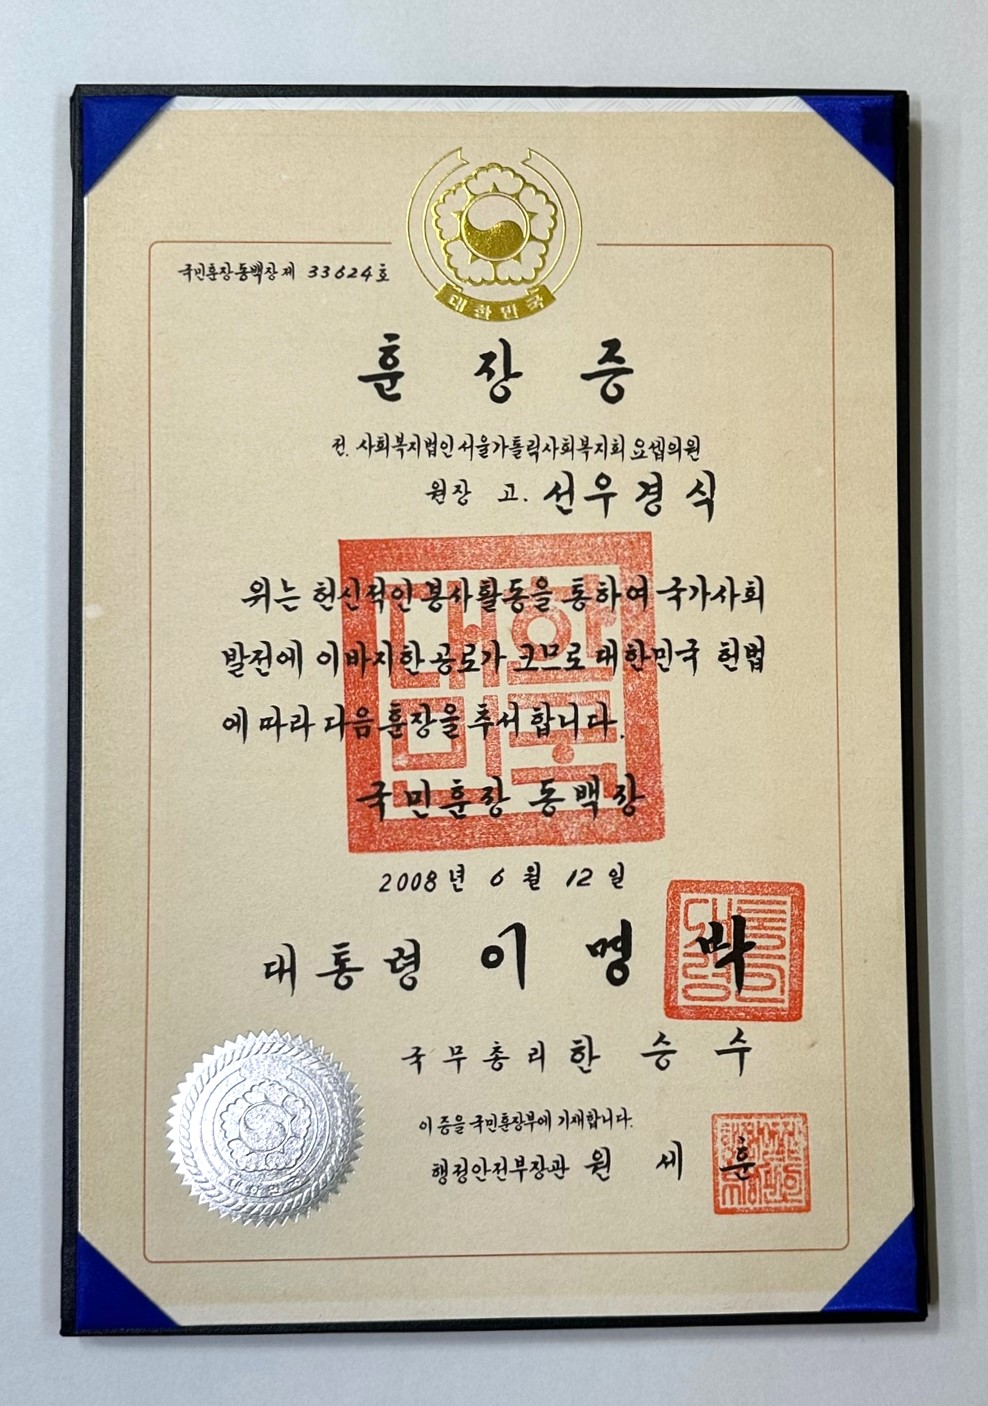 대한민국
국민훈장동백장 제 33624호
훈장증
전. 사회복지법인서울가톨릭사회복지회 요셉의원
원장 고. 선우경식
위는 헌신적인 봉사활동을 통하여 국가사회
발전에 이바지한 공로가 크므로 대한민국 헌법
에 따라 다음 훈장을 추서합니다.
국민훈장 동백장
2008년 6월 12일
대통령 이명박
국무총리 한승수
이 증을 국민훈장부에 기재합니다.
행정안전부장관 원세훈
대한민국
대한민국
대통령